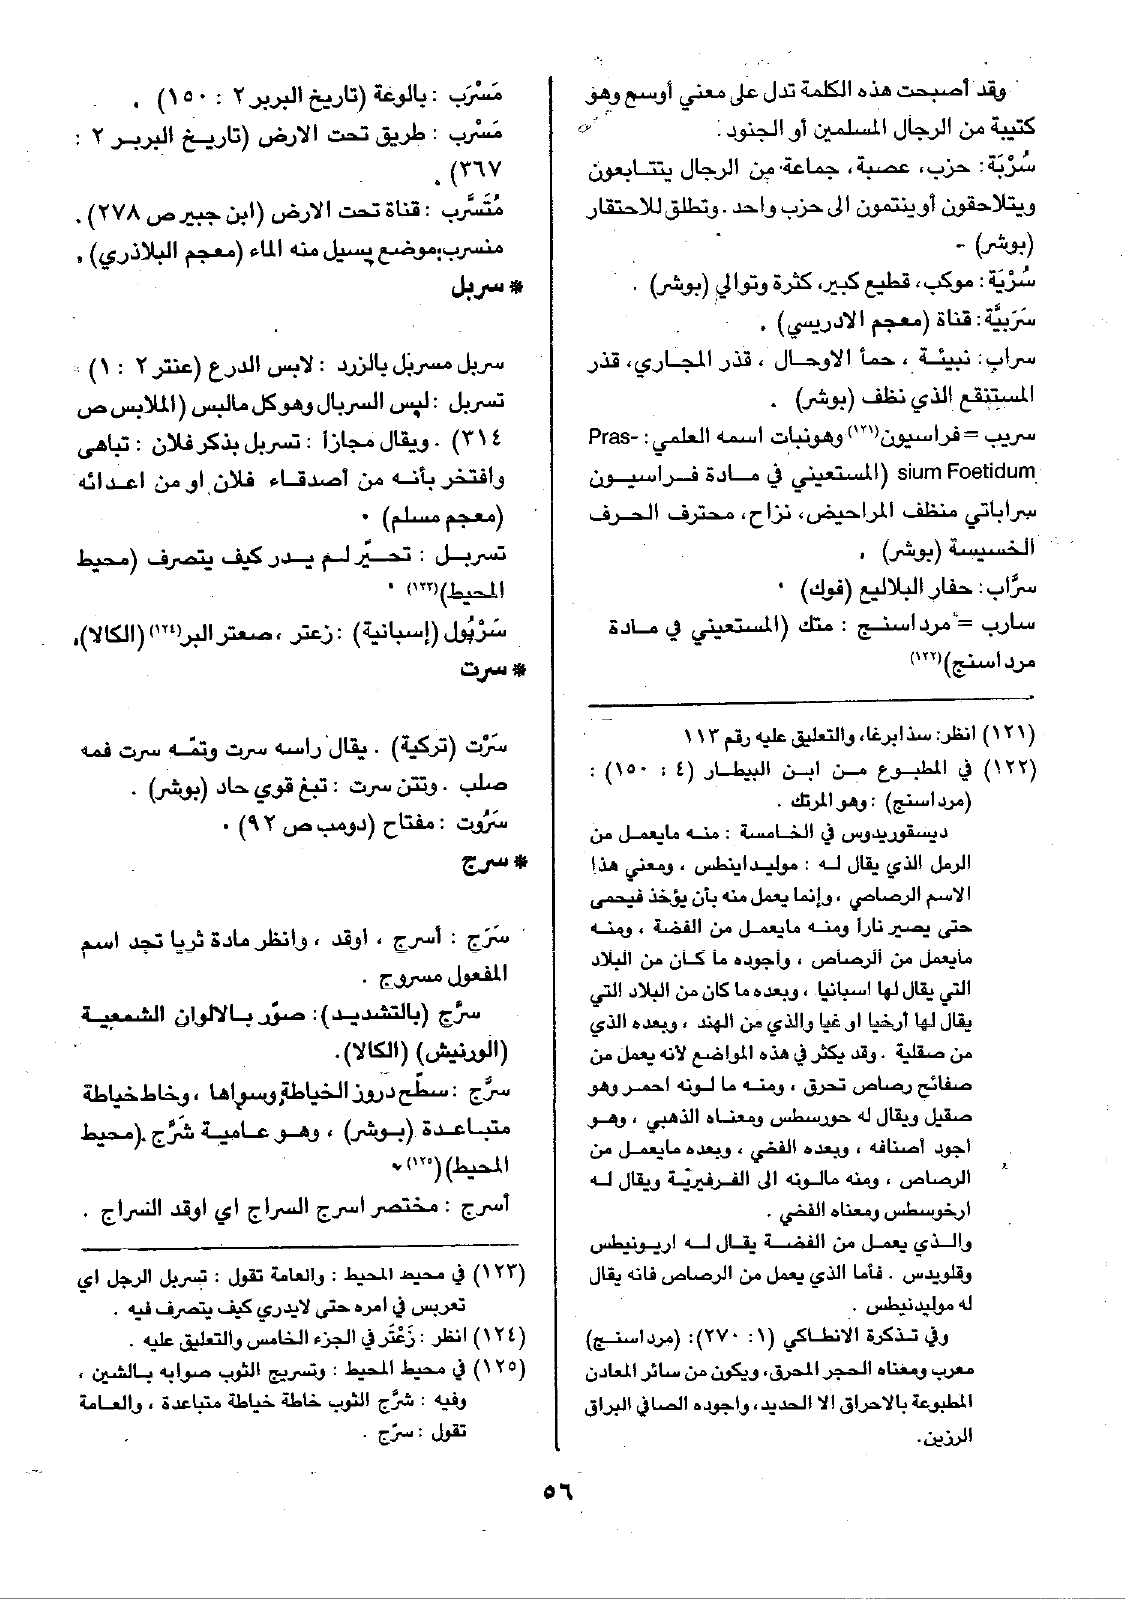 وقد أصبحت هذه الكلمة تدل على معنى أوسع وهو
كتيبة من الرجال المسلمين أو الجنود.
سُرْبَة: حزب، عصبة، جماعة من الرجال يتتابعون
ويتلاحقون أو ينتمون الى حزب واحد. وتطلق للاحتقار
(بوشر) -
سُرْبَة: موكب، قطيع كبير، كثرة وتوالي (بوشر) .
سَرَبيَّة: قناة (معجم الادريسي) .
سراب: نبيئة ، حمأ الاوحال ، قذر المجاري، قذر
المستنقع الذي نظف (بوشر) .
سريب = فراسيون(١٢١) وهونبات اسمه العلمي: Pras-
sium Foetidum (المستعيني في مادة فراسيون
سراباتي منظف المراحيض، نزاح، محترف الحرف
الخسيسة (بوشر) .
سرَّاب: حفار البلاليع (فوك) .
سارب = مرداسنج : متك (المستعيني في مادة
مرداسنج)(١٢٢)
(١٢١) انظر: سذابرغا، والتعليق عليه رقم ١١٣
(١٢٢) في المطبوع من ابن البيطار (٤ : ١٥٠) :
(مرداسنج) : وهو المرتك .
ديسقوريدوس في الخامسة : منه مايعمل من
الرمل الذي يقال له : موليداينطس ، ومعنى هذا
الاسم الرصاصي ، وإنما يعمل منه بأن يؤخذ فيحمى
حتى يصير ناراً ومنه مايعمل من الفضة ، ومنه
مايعمل من الرصاص ، وأجوده ما كان من البلاد
التي يقال لها اسبانيا ، وبعده ما كان من البلاد التي
يقال لها أرخيا او غيا والذي من الهند ، وبعده الذي
من صقلية . وقد يكثر في هذه المواضع لأنه يعمل من
صفائح رصاص تحرق ، ومنه ما لونه احمر وهو
صقيل ويقال له حورسطس ومعناه الذهبي ، وهو
اجود أصنافه ، وبعده الفضي ، وبعده مايعمل من
الرصاص ، ومنه مالونه الى الفرفيريّة ويقال له
ارخوسطس ومعناه الفضي .
والذي يعمل من الفضة يقال له اريونيطس
وقلويدس . فأما الذي يعمل من الرصاص فانه يقال
له موليدنيطس .
وفي تذكرة الانطاكي (١: ٢٧٠): (مرداسنج)
معرب ومعناه الحجر المحرق، ويكون من سائر المعادن
المطبوعة بالاحراق الا الحديد، واجوده الصافي البراق
الرزين.
مَسْرَب : بالوعة (تاريخ البربر ٢ : ١٥٠) .
مَسْرَب : طريق تحت الارض (تاريخ البربر ٢ :
٣٦٧) .
مُتَسَرَّب : قناة تحت الارض (ابن جبير ص ٢٧٨) .
منسرب: موضع يسيل منه الماء (معجم البلاذري) .
* سربل
سربل مسربل بالزرد : لابس الدرع (عنتر ٢ : ١)
تسربل : لبس السربال وهو كل مالبس (الملابس ص
٣١٤) . ويقال مجازاً : تسربل بذكر فلان : تباهى
وافتخر بأنه من أصدقاء فلان او من اعدائه
(معجم مسلم) .
تسربل : تحيَّر لم يدر كيف يتصرف (محيط
المحيط)(١٢٣) .
سَرْبُول (إسبانية) : زعتر ، صعتر البر(١٢٤) (الكالا).
* سرت
سَرْت (تركية) . يقال راسه سرت وتمّه سرت فمه
صلب . وتتن سرت : تبغ قوي حاد (بوشر) .
سَرُوت : مفتاح (دومب ص ٩٢) .
* سرج
سَرَج : أسرج ، اوقد ، وانظر مادة ثريا تجد اسم
المفعول مسروج .
سرَّج (بالتشديد): صوّر بالالوان الشمعية
(الورنيش) (الكالا).
سرَّج : سطّح دروز الخياطة وسواها ، وخاط خياطة
متباعدة (بوشر) ، وهو عامية شَرَّج (محيط
المحيط)(١٢٥)
أسرج : مختصر اسرج السراج اي اوقد السراج .
(١٢٣) في محيط المحيط : والعامة تقول : تسربل الرجل اي
تعربس في امره حتى لايدري كيف يتصرف فيه .
(١٢٤) انظر : زَعْتَر في الجزء الخامس والتعليق عليه .
(١٢٥) في محيط المحيط : وتسريج الثوب صوابه بالشين ،
وفيه : شرَّج الثوب خاطة خياطة متباعدة ، والعامة
تقول : سرّج .
٥٦